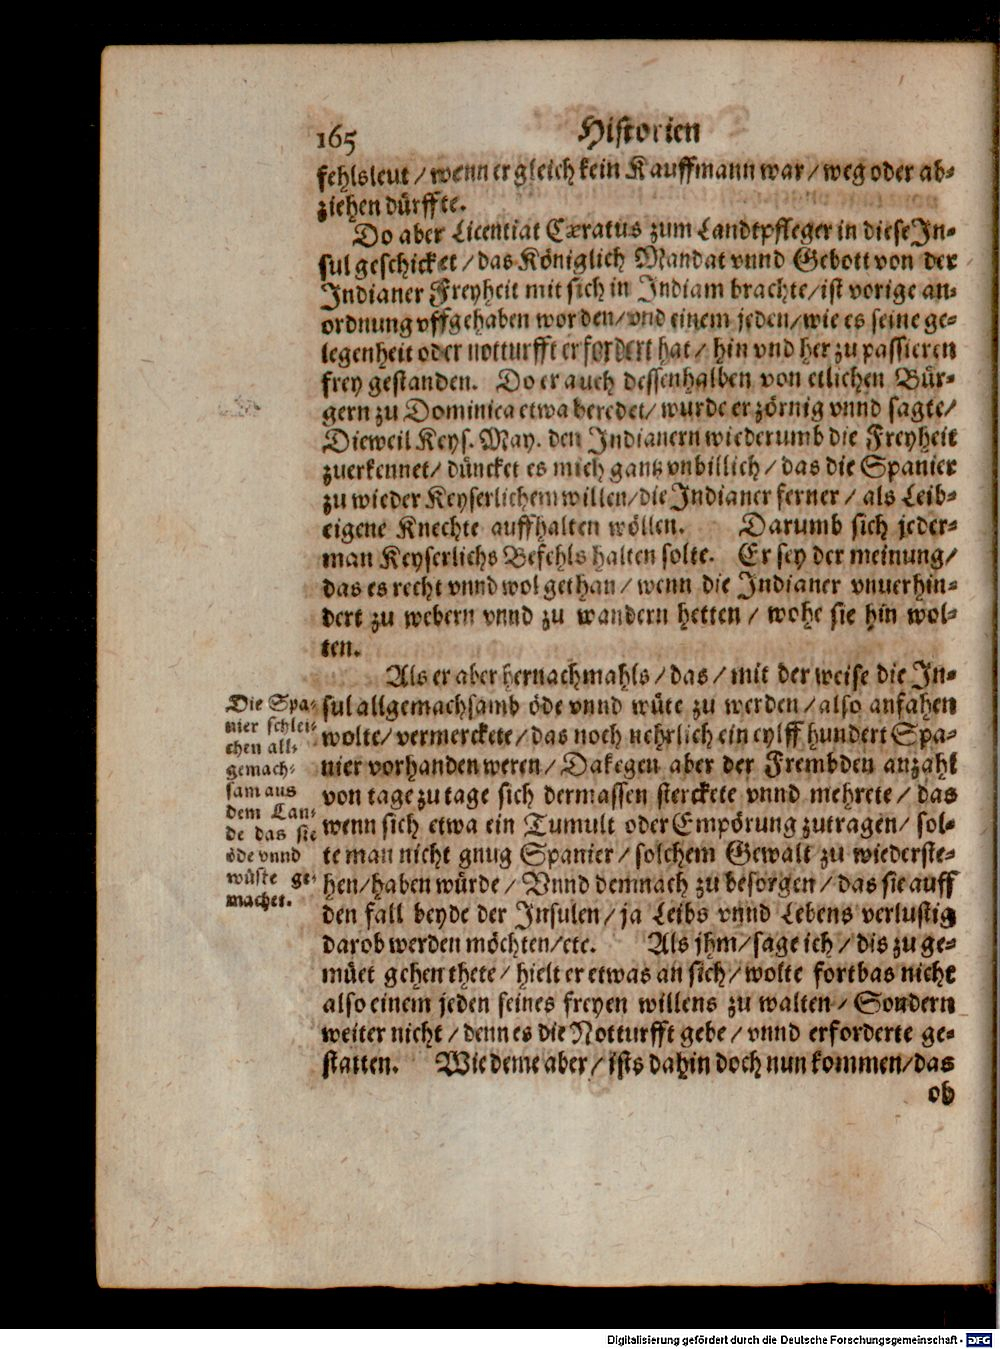 165 Historien
fehlsleut / wenn er gleich kein Kauffmann war / weg oder ab-
ziehen dürffte.
Do aber Licentiat Cæratus zum Landtpfleger in diese In-
sul geschicket / das Königlich Mandat vnnd Gebott von der
Indianer Freyheit mit sich in Indiam brachte / ist vorige an-
ordnung vffgehaben worden / vnd einem jeden / wie es seine ge-
legenheit oder notturfft erfordert hat / hin vnd her zu passieren
frey gestanden. Do er auch dessenhalben von etlichen Bür-
gern zu Dominica etwa beredet / wurde er zörnig vnnd sagte /
Dieweil Keys. May. den Indianern wiederumb die Freyheit
zuerkennet / düncket es mich gantz vnbillich / das die Spanier
zu wieder Keyserlichem willen / die Indianer ferner / als Leib-
eigene Knechte auffhalten wöllen. Darumb sich jeder-
man Keyserlichs Befehls halten solte. Er sey der meinung /
das es recht vnnd wol gethan / wenn die Indianer vnuerhin-
dert zu webern vnnd zu wandern hetten / wohe sie hin wol-
ten.
Als er aber hernachmahls / das / mit der weise die In-
sul allgemachsamb öde vnnd wüte zu werden / also anfahen
wolte / vermerckete / das noch nehrlich ein eylff hundert Spa-
nier vorhanden weren / Dakegen aber der Frembden anzahl
von tage zu tage sich dermassen sterckete vnnd mehrete / das
wenn sich etwa ein Tumult oder Empörung zutragen / sol-
te man nicht gnug Spanier / solchem Gewalt zu wiederste-
hen / haben würde / Vnnd demnach zu besorgen / das sie auff
den fall beyde der Insulen / ja Leibs vnnd Lebens verlustig
darob werden möchten / etc. Als jhm / sage ich / dis zu ge-
müet gehen thete / hielt er etwas an sich / wolte fortbas nicht
also einem jeden seines freyen willens zu walten / Sondern
weiter nicht / denn es die Notturfft gebe / vnnd erforderte ge-
statten. Wie deme aber / ists dahin doch nun kommen / das
ob
Die Spa-
nier schlei-
chen all-
gemach-
sam aus
dem Lan-
de das sie
öde vnnd
wüste ge-
machet.
Digitalisierung gefördert durch die Deutsche Forschungsgemeinschaft - DFG